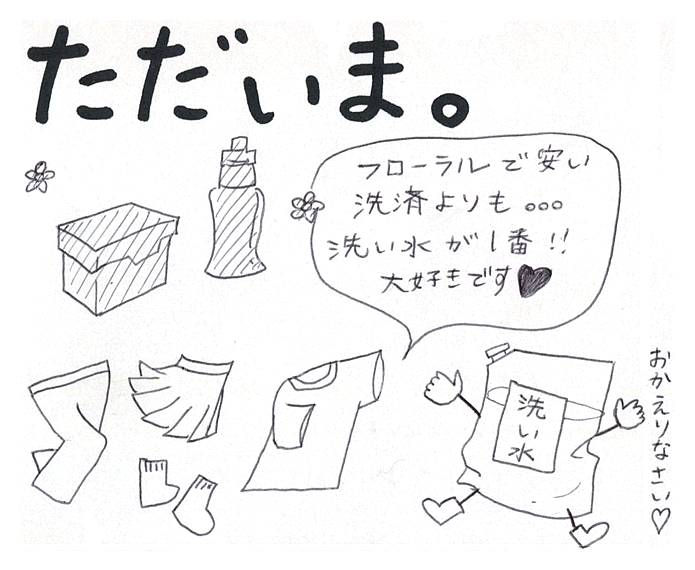 ただいま。
フローラルで安い
洗済よりも。。。
洗い水が1番!!
大好きです♥
洗い水
おかえりなさい♡